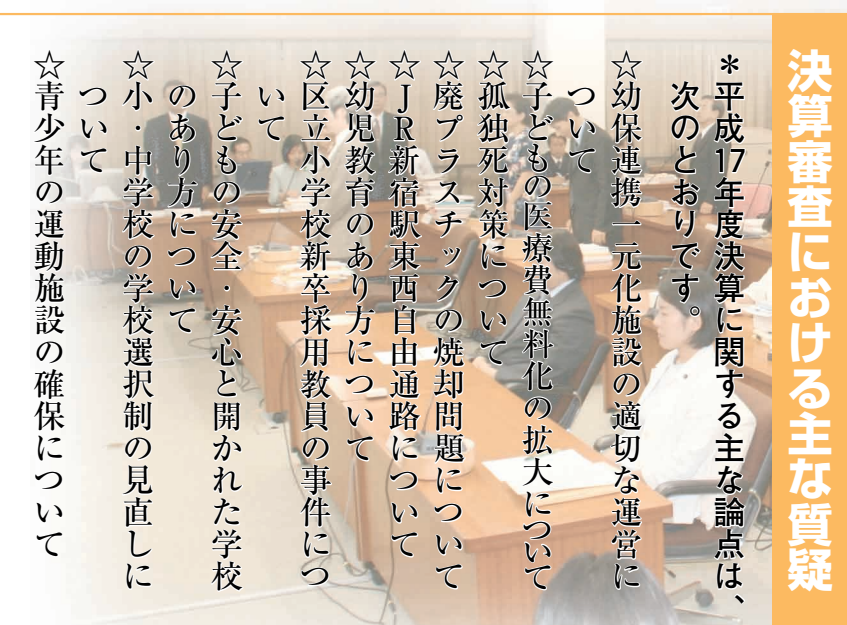 決算審査における主な質疑
＊平成17年度決算に関する主な論点は、
次のとおりです。
☆幼保連携一元化施設の適切な運営に
ついて
☆子どもの医療費無料化の拡大について
☆孤独死対策について
☆廃プラスチックの焼却問題について
☆ＪＲ新宿駅東西自由通路について
☆幼児教育のあり方について
☆区立小学校新卒採用教員の事件につ
いて
☆子どもの安全・安心と開かれた学校
のあり方について
☆小・中学校の学校選択制の見直しに
ついて
☆青少年の運動施設の確保について